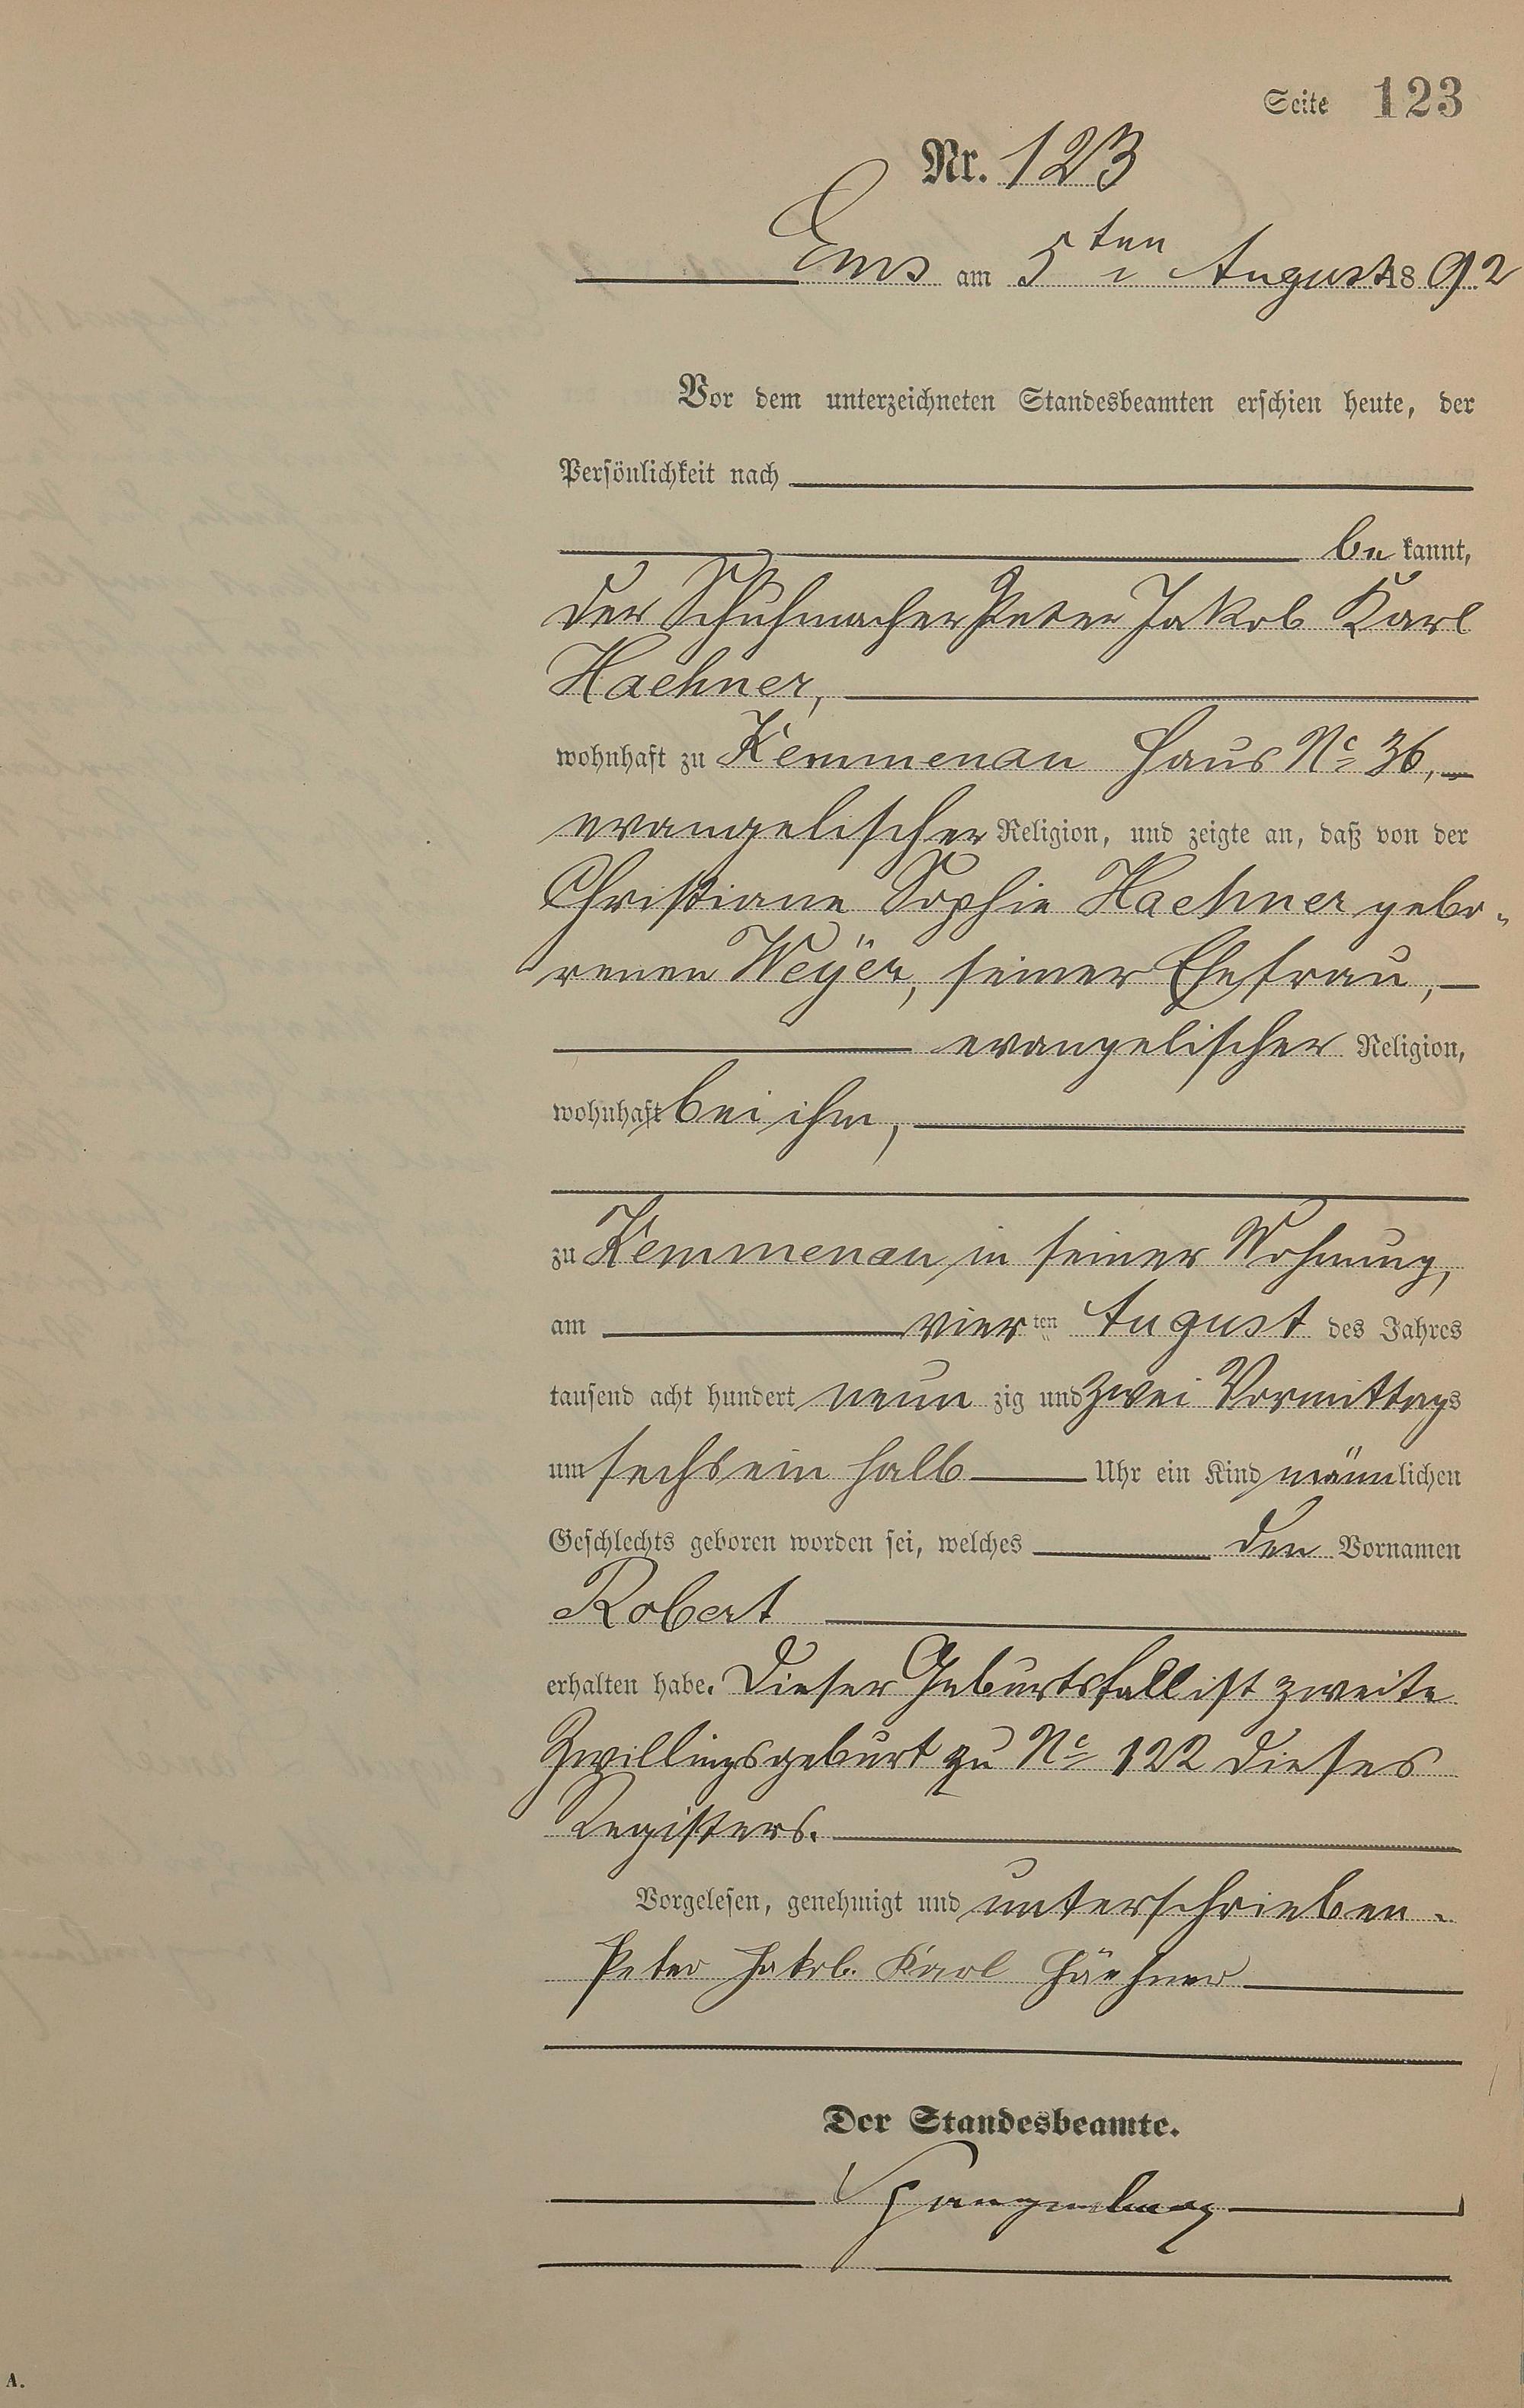 Seite 123
Nr. 123
Ems am 5ten August 1892
Vor dem unterzeichneten Standesbeamten erschien heute, der
Persönlichkeit nach
be kannt,
der Schuhmacher Peter Jakob Karl
Haehner,
wohnhaft zu Kemmenau Haus No 36,
evangelischer Religion, und zeigte an, daß von der
Christiane Sophie Haehner gebo-
renen Weÿer, seiner Ehefrau,
evangelischer Religion,
wohnhaft bei ihm,
zu Kemmenau in seiner Wohnung,
am vier ten August des Jahres
tausend acht hundert neun zig und zwei Vormittags
um sechs ein halb Uhr ein Kind männlichen
Geschlechts geboren worden sei, welches den Vornamen
Robert
erhalten habe. Dieser Geburtsfall ist zweite
Zwillingsgeburt zu No 122 dieses
Registers.
Vorgelesen, genehmigt und unterschrieben.
Peter Jakob Karl Häehner
Der Standesbeamte.
Spangenberg
A.